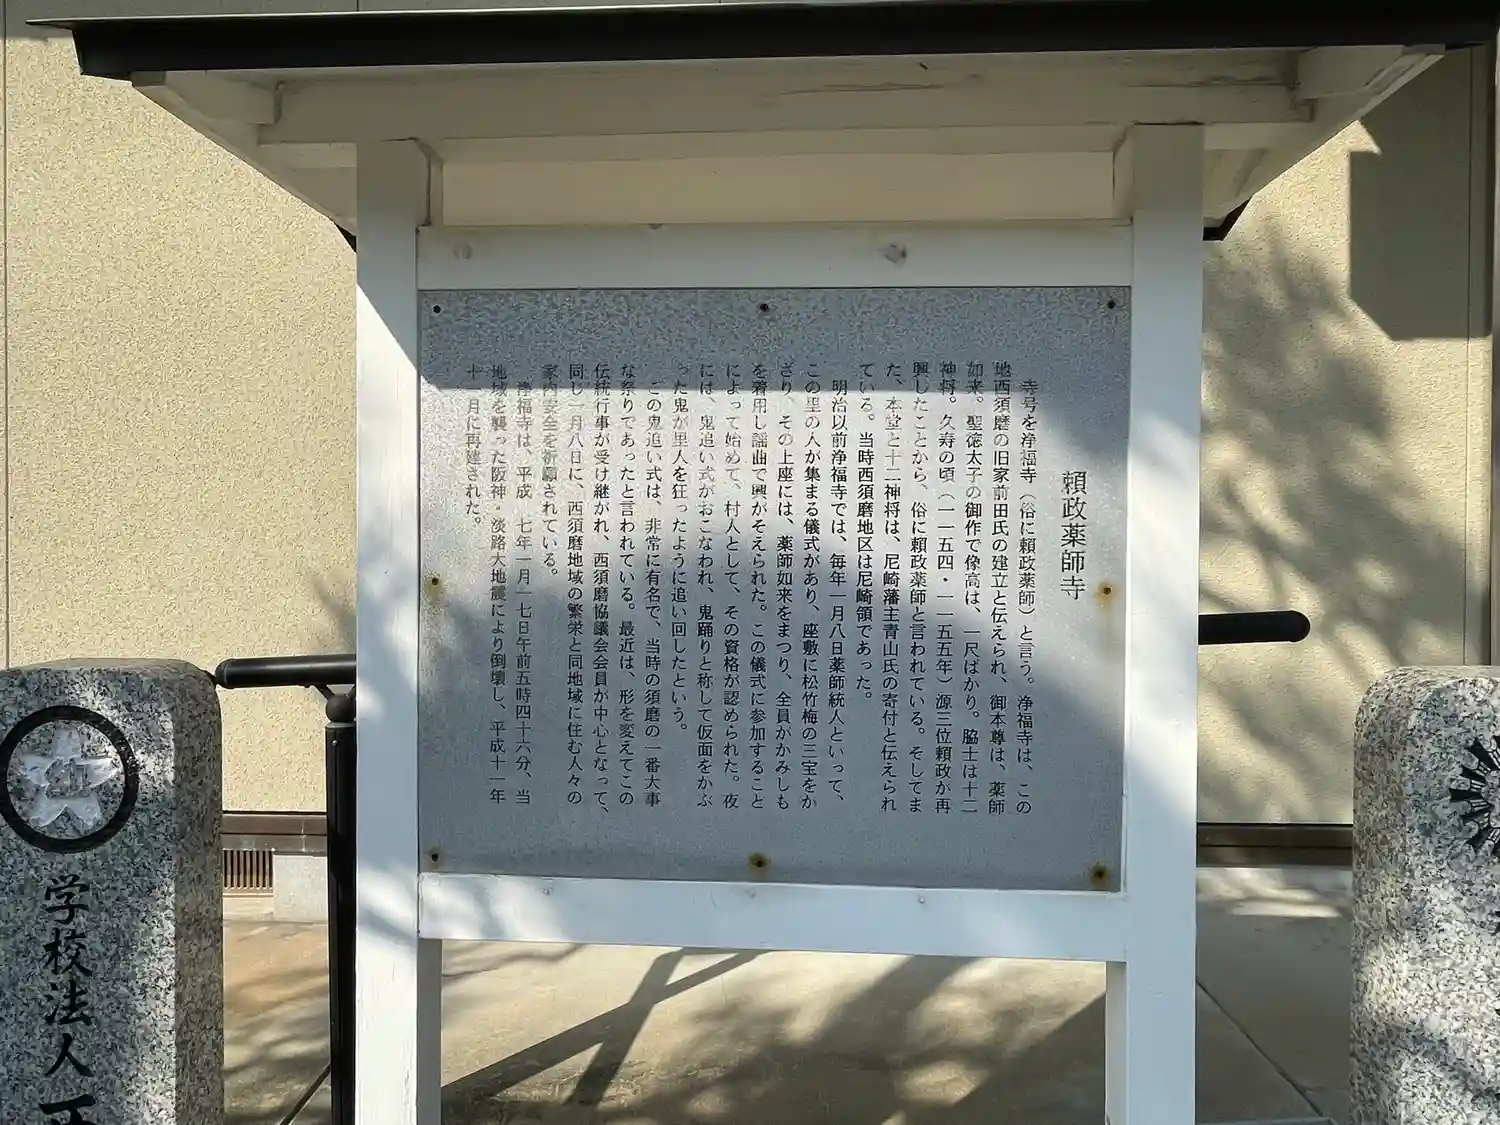 頼政薬師寺
寺号を浄福寺（俗に頼政薬師）と言う。浄福寺は、この
地西須磨の旧家前田氏の建立と伝えられ、御本尊は、薬師
如来。聖徳太子の御作で像高は、一尺ばかり。脇士は十二
神将。久寿の頃（一一五四・一一五五年）源三位頼政が再
興したことから、俗に頼政薬師と言われている。そしてま
た、本堂と十二神将は、尼崎藩主青山氏の寄付と伝えられ
ている。当時西須磨地区は尼崎領であった。
明治以前浄福寺では、毎年一月八日薬師統人といって、
この里の人が集まる儀式があり、座敷に松竹梅の三宝をか
ざり、その上座には、薬師如来をまつり、全員がかみしも
を着用し謡曲で興がそえられた。この儀式に参加すること
によって始めて、村人として、その資格が認められた。夜
には、鬼追い式がおこなわれ、鬼踊りと称して仮面をかぶ
った鬼が里人を狂ったように追い回したという。
この鬼追い式は、非常に有名で、当時の須磨の一番大事
な祭りであったと言われている。最近は、形を変えてこの
伝統行事が受け継がれ、西須磨協議会会員が中心となって、
同じ一月八日に、西須磨地域の繁栄と同地域に住む人々の
家内安全を祈願されている。
浄福寺は、平成七年一月一七日午前五時四十六分、当
地域を襲った阪神・淡路大地震により倒壊し、平成十一年
十一月に再建された。
学校法人